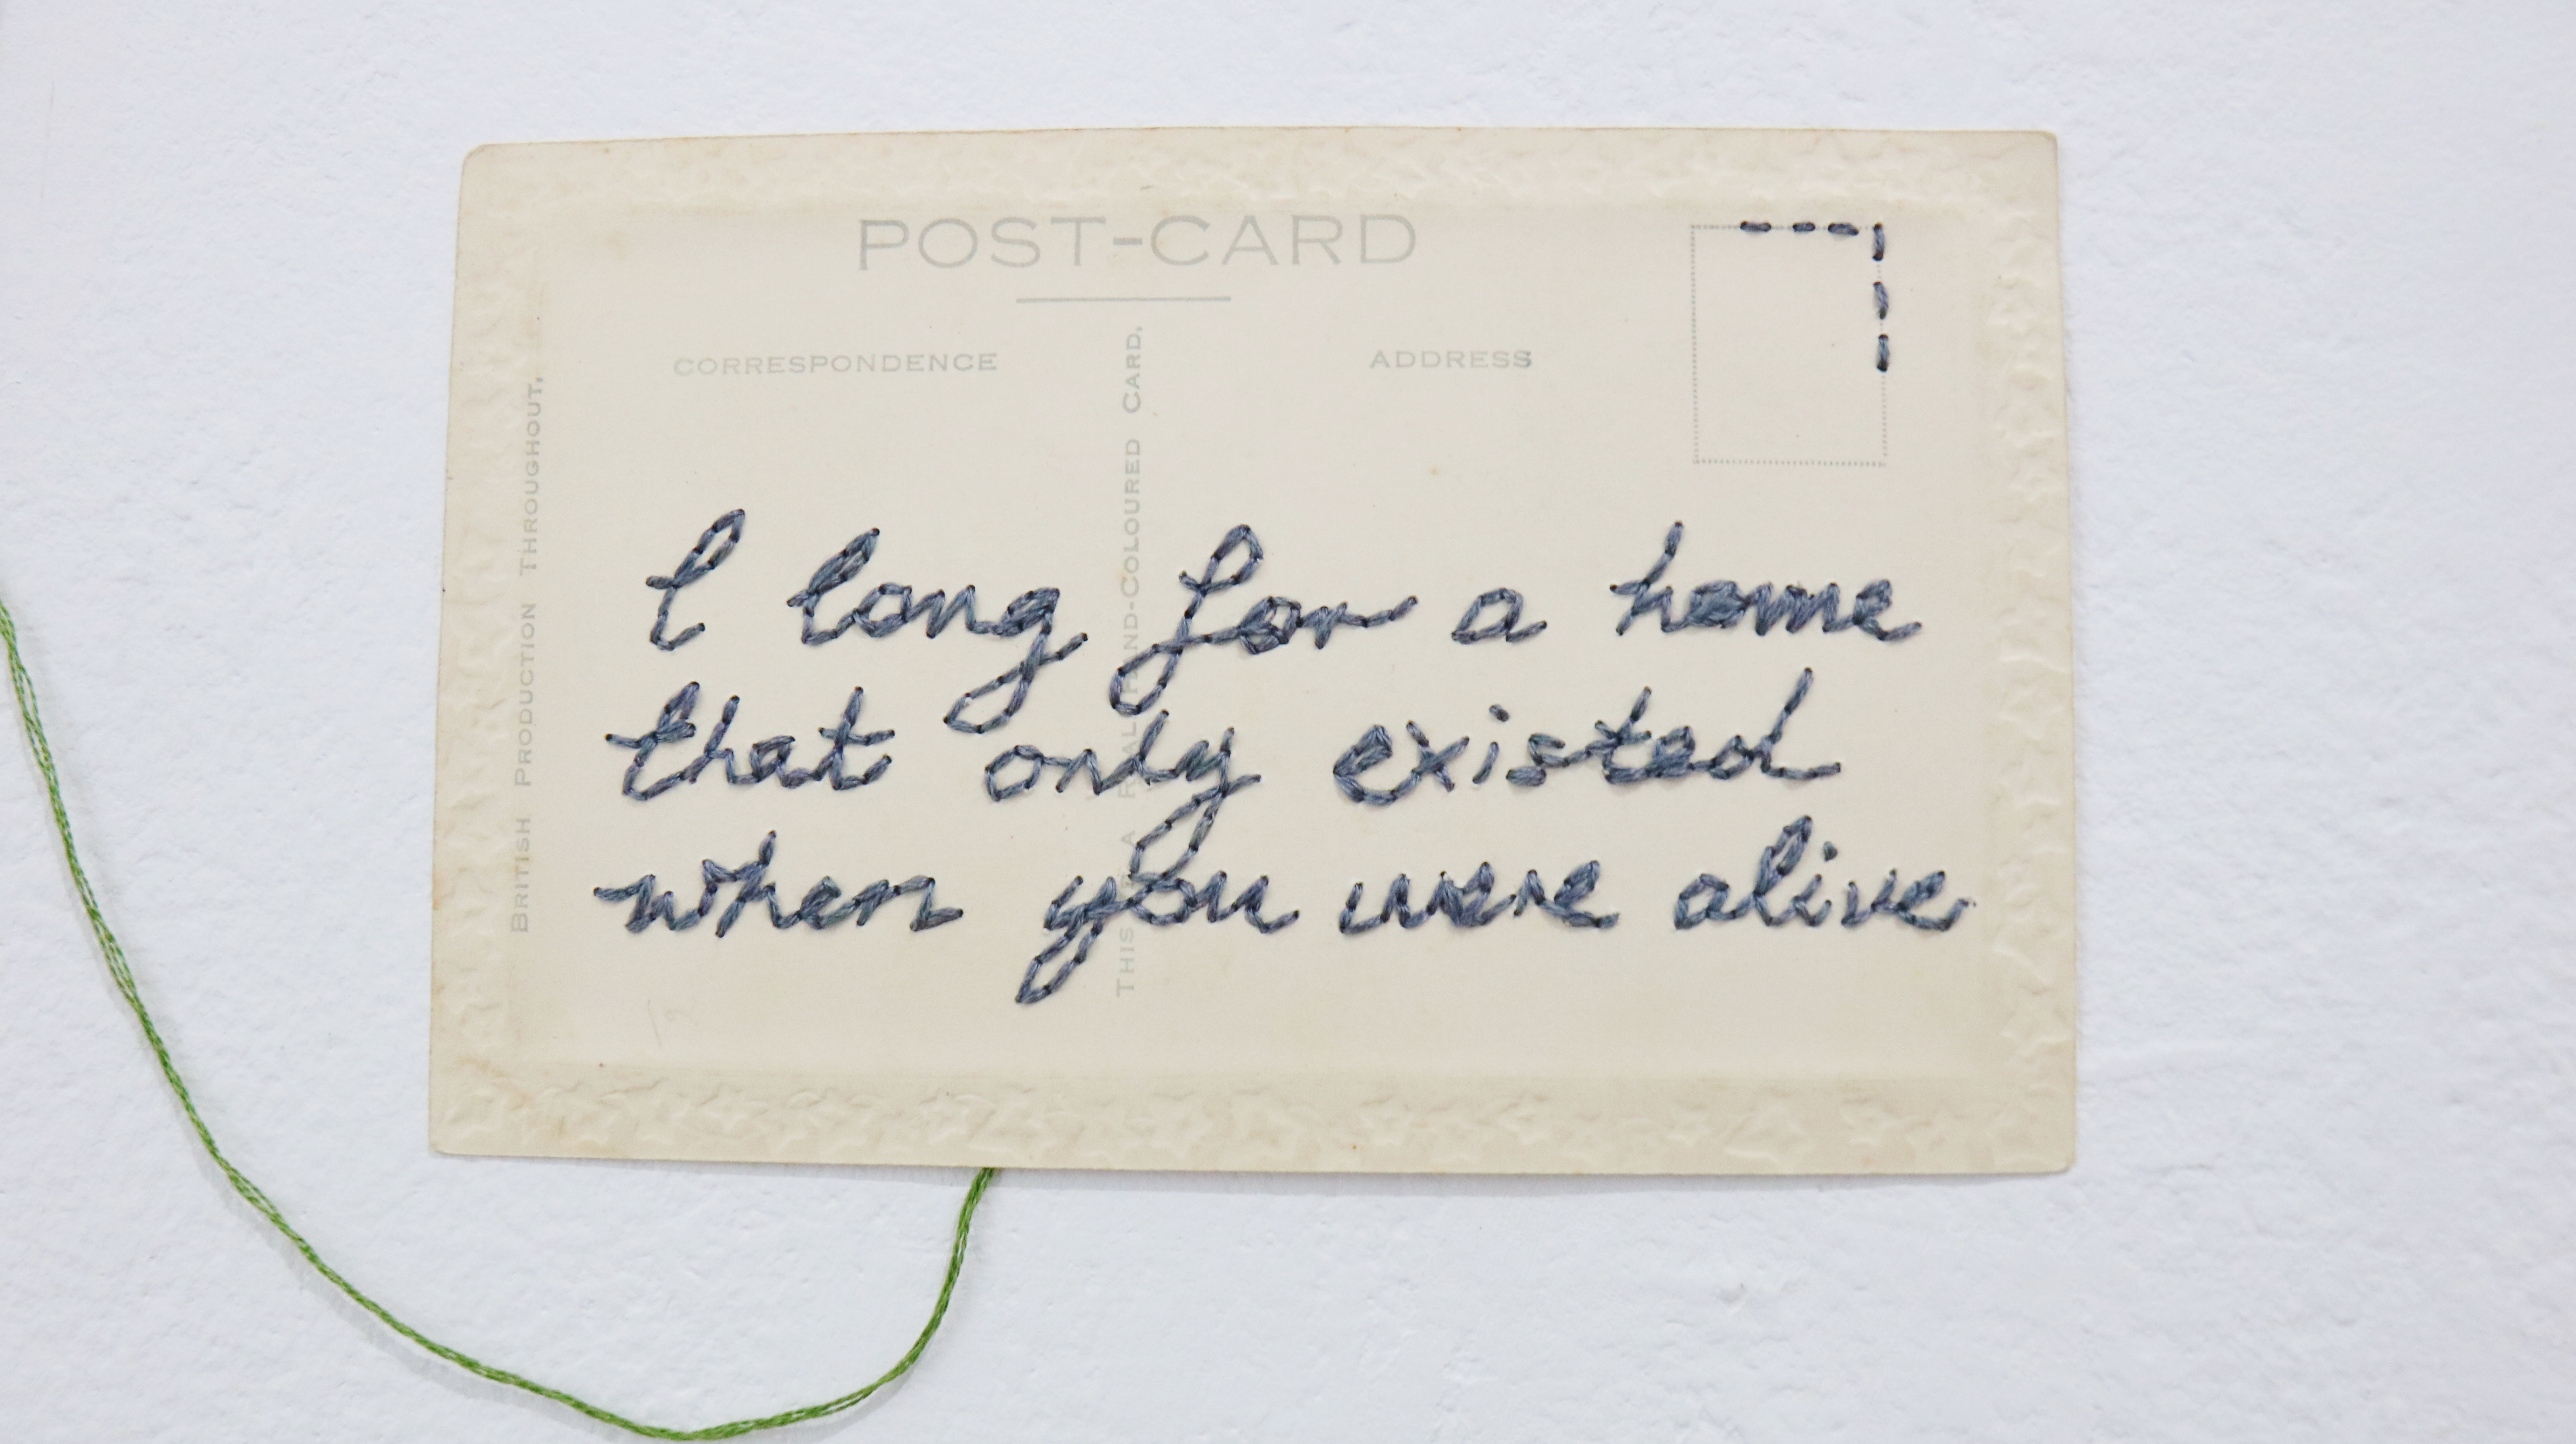 POST-CARD
CORRESPONDENCE
ADDRESS
BRITISH PRODUCTION THROUGHOUT.
THIS A REAL HAND-COLOURED CARD.
I long for a home
that only existed
when you were alive